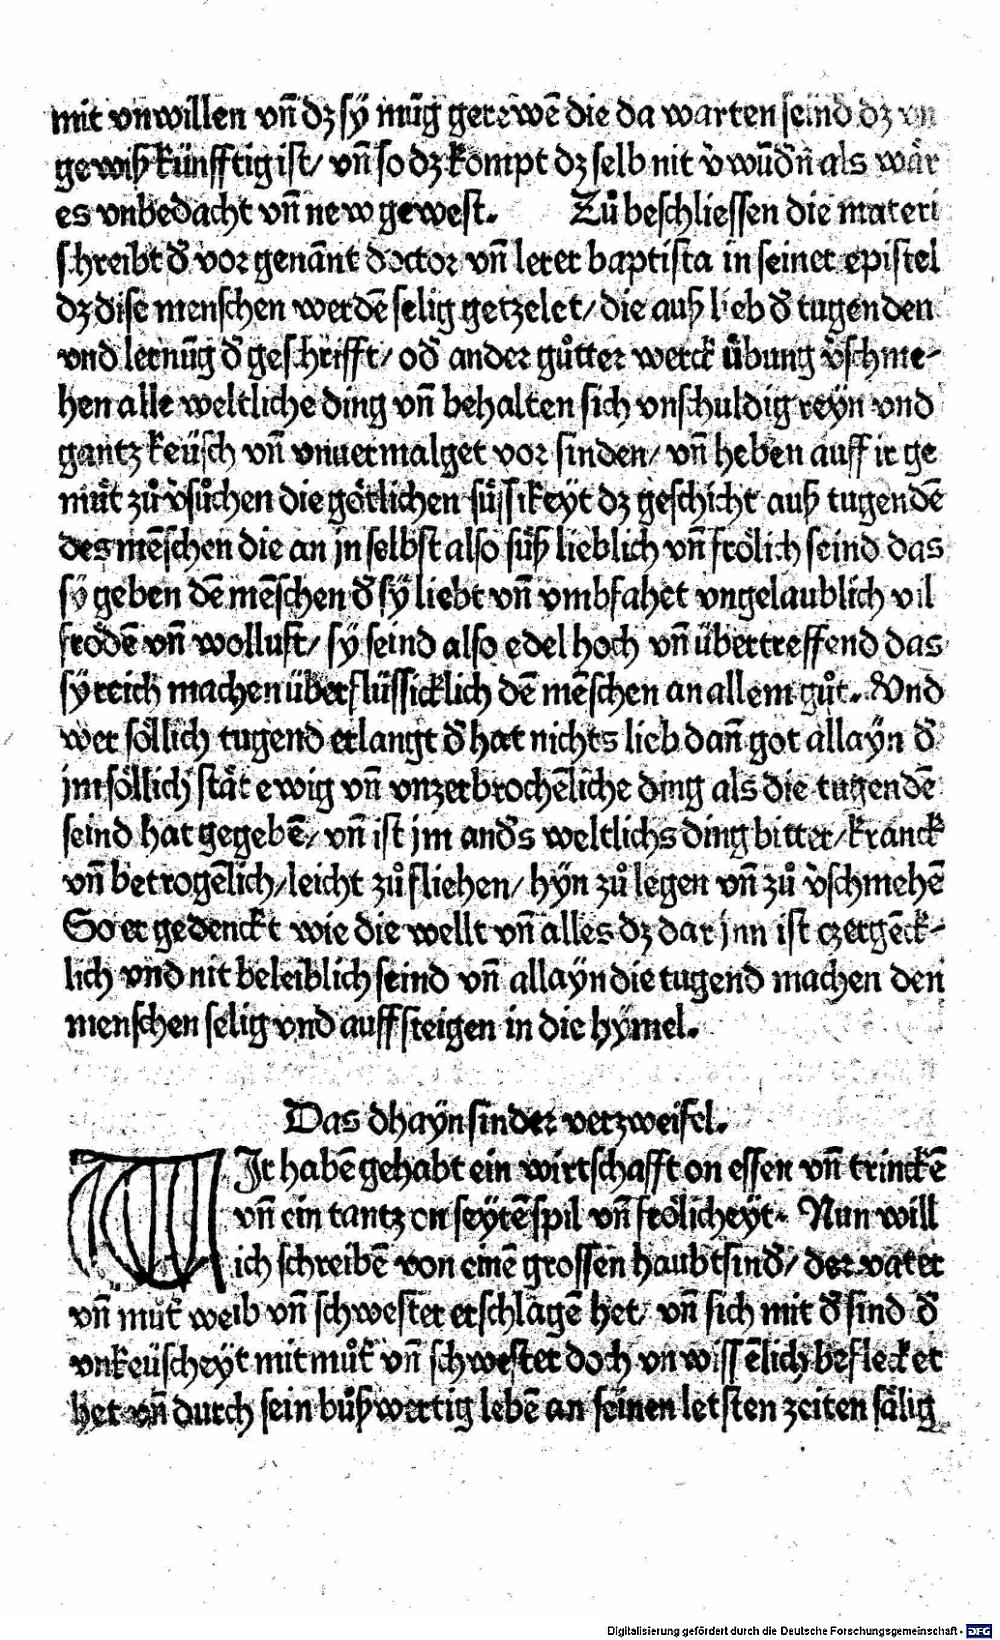 mit vnwillen vñ dz sÿ mũg gerewẽ die da warten seind dz vn
gewiß künfftig ist/ vñ so dz kompt dz selb nit v̓wũdn̄ als wår
es vnbedacht vñ new gewest. Zů beschliessen die materi
schreibt đ vor genãnt doctor vñ lerer baptista in seiner epistel
dz dise menschen werdẽ selig getzelet/ die auß lieb đ tugenden
vnd lernũg đ geschrifft/ ođ ander gůtter werck ůbung v̓schme-
hen alle weltliche ding vñ behalten sich vnschuldig reyn vnd
gantz keüsch vñ vnuermalget vor sinden/ vñ heben auff ir ge
můt zů v̓sůchen die gȍtlichen sůssikeyt dz geschicht auß tugendẽ
des mẽschen die an jn selbst also sůß lieblich vñ frȍlich seind das
sÿ geben dẽ mẽschen đ sÿ liebt vñ vmbfahet vngelaublich vil
frȍdẽ vñ wollust/ sÿ seind also edel hoch vñ übertreffend das
sÿ reich machen überflüssicklich dẽ mẽschen an allem gůt. Vnd
wer sȍllich tugend erlangt đ hat nichts lieb dañ got allaÿn đ
jm sȍllich ståt ewig vñ vnzerbrochẽliche ding als die tugendẽ
seind hat gegebẽ/ vñ ist jm anđs weltlichs ding bitter/ kranck
vñ betrogẽlich/ leicht zů fliehen/ hÿn zů legen vñ zů v̓schmehẽ
So er gedenckt wie die wellt vñ alles dz dar jnn ist czergẽck-
lich vnd nit beleiblich seind vñ allaÿn die tugend machen den
menschen selig vnd auff steigen in die hÿmel.
Das dhaÿn sinder verzweifel.
WIr habẽ gehabt ein wirtschafft on essen vñ trinckẽ
vñ ein tantz on seÿtẽspil vñ frȍlicheÿt. Nun will
ich schreibẽ von einẽ grossen haubtsinđ/ der vater
vñ můt̃ weib vñ schwester erschlagẽ het/ vñ sich mit đ sind đ
vnkeüscheÿt mit můt̃ vñ schwester doch vnwissẽlich beflecket
het vñ durch sein bůßwertig lebẽ an seinen letsten zeiten sålig
Digitalisierung gefördert durch die Deutsche Forschungsgemeinschaft - DFG